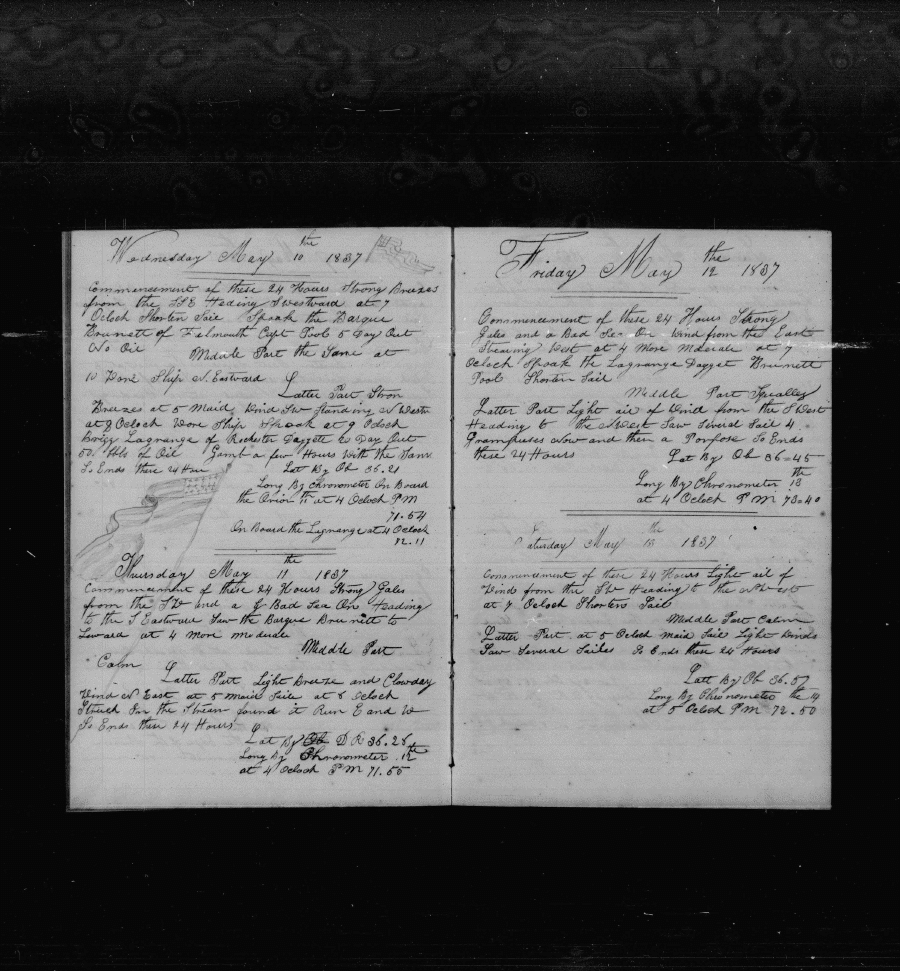 Wednesday May 10 the 1837
Commencement of these 24 Hours Strong Breezes
from the SSE Heding S Westward at 7
Ocloch Shorten Sail Speak the Barque
Brunett of Falmouth Capt Pool 5 Day Out
No Oil Middle Part the Same at
10 Wore Ship N. Eastward
Latter Part Stron
Breezes at 5 Maid Wind SW Standing N Westw
at 8 Ocloch Wore Ship Spoak at 9 Ocloch
Brigg Lagrange of Rochester Daggett Day Out
50 bbls of Oil Gamt a few Hours With the Same
So Ends these 24 Hour Lat By Ob 36.21
Long By Chronometer On Board
the Orion 11 at 4 Ocloch PM
71.54
On Board the Lagrange at 4 Ocloch
72.11
Thursday May 11 the 1837
Commencement of these 24 Hours Strong Gales
from the SW and a Bad Sea On Heading
to the S Eastward Saw the Barque Brunett to
Leward at 4 More Moderate
Middle Part
Calm
Latter Part Light Breeze and Clowday
Wind N East at 5 Maid Saile at 8 Ocloch
Struck In the Stream found it Run E and W
So Ends these 24 Hours
Lat By Ob D R 36.28
Long By Chronometer 12 th
at 4 Ocloch PM 71.55
Friday May 12 the 1837
Commencement of these 24 Hours Strong
Gales and a Bad Sea On Wind from the East
Stearing West at 4 More Moderate at 7
Ocloch Spoak the Lagrange Dagget Brunett
Pool Shorten Sail
Middle Part Squalley
Latter Part Light air of Wind from the S West
Heading to the N West Saw Several Sail 4
Grampuses Now and then a Porpose So Ends
these 24 Hours Lat By Ob 36=45
Long By Chronometer 13 th
at 4 Ocloch PM 73=40
Saturday May 13 th 1837
Commencement of these 24 Hours Light air of
Wind from the SW Heading to the NW est
at 7 Ocloch Shorten Sail
Middle Part Calm
Latter Part at 5 Ocloch Maid Sail Light Winds
Saw Several Sailes So Ends these 24 Hours
Latt By Ob 36.57
Long By Chronometer the 14
at 5 Ocloch PM 72.50